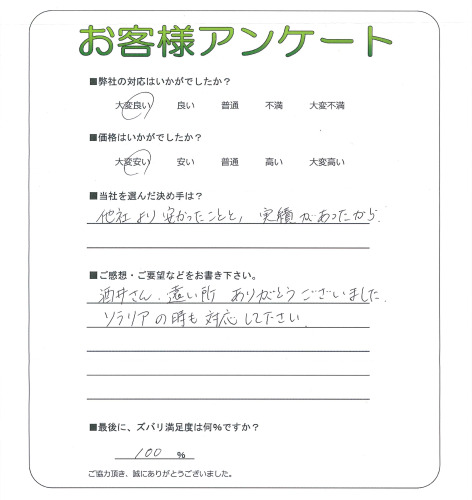 お客様アンケート
■弊社の対応はいかがでしたか？
大変良い 良い 普通 不満 大変不満
■価格はいかがでしたか？
大変安い 安い 普通 高い 大変高い
■当社を選んだ決め手は？
他社より安かったことと、実績があったから.
■ご感想・ご要望などをお書き下さい。
酒井さん.遠い所 ありがとうございました.
ソラリアの時も対応して下さい.
■最後に、ズバリ満足度は何％ですか？
100 %
ご協力頂き、誠にありがとうございました。